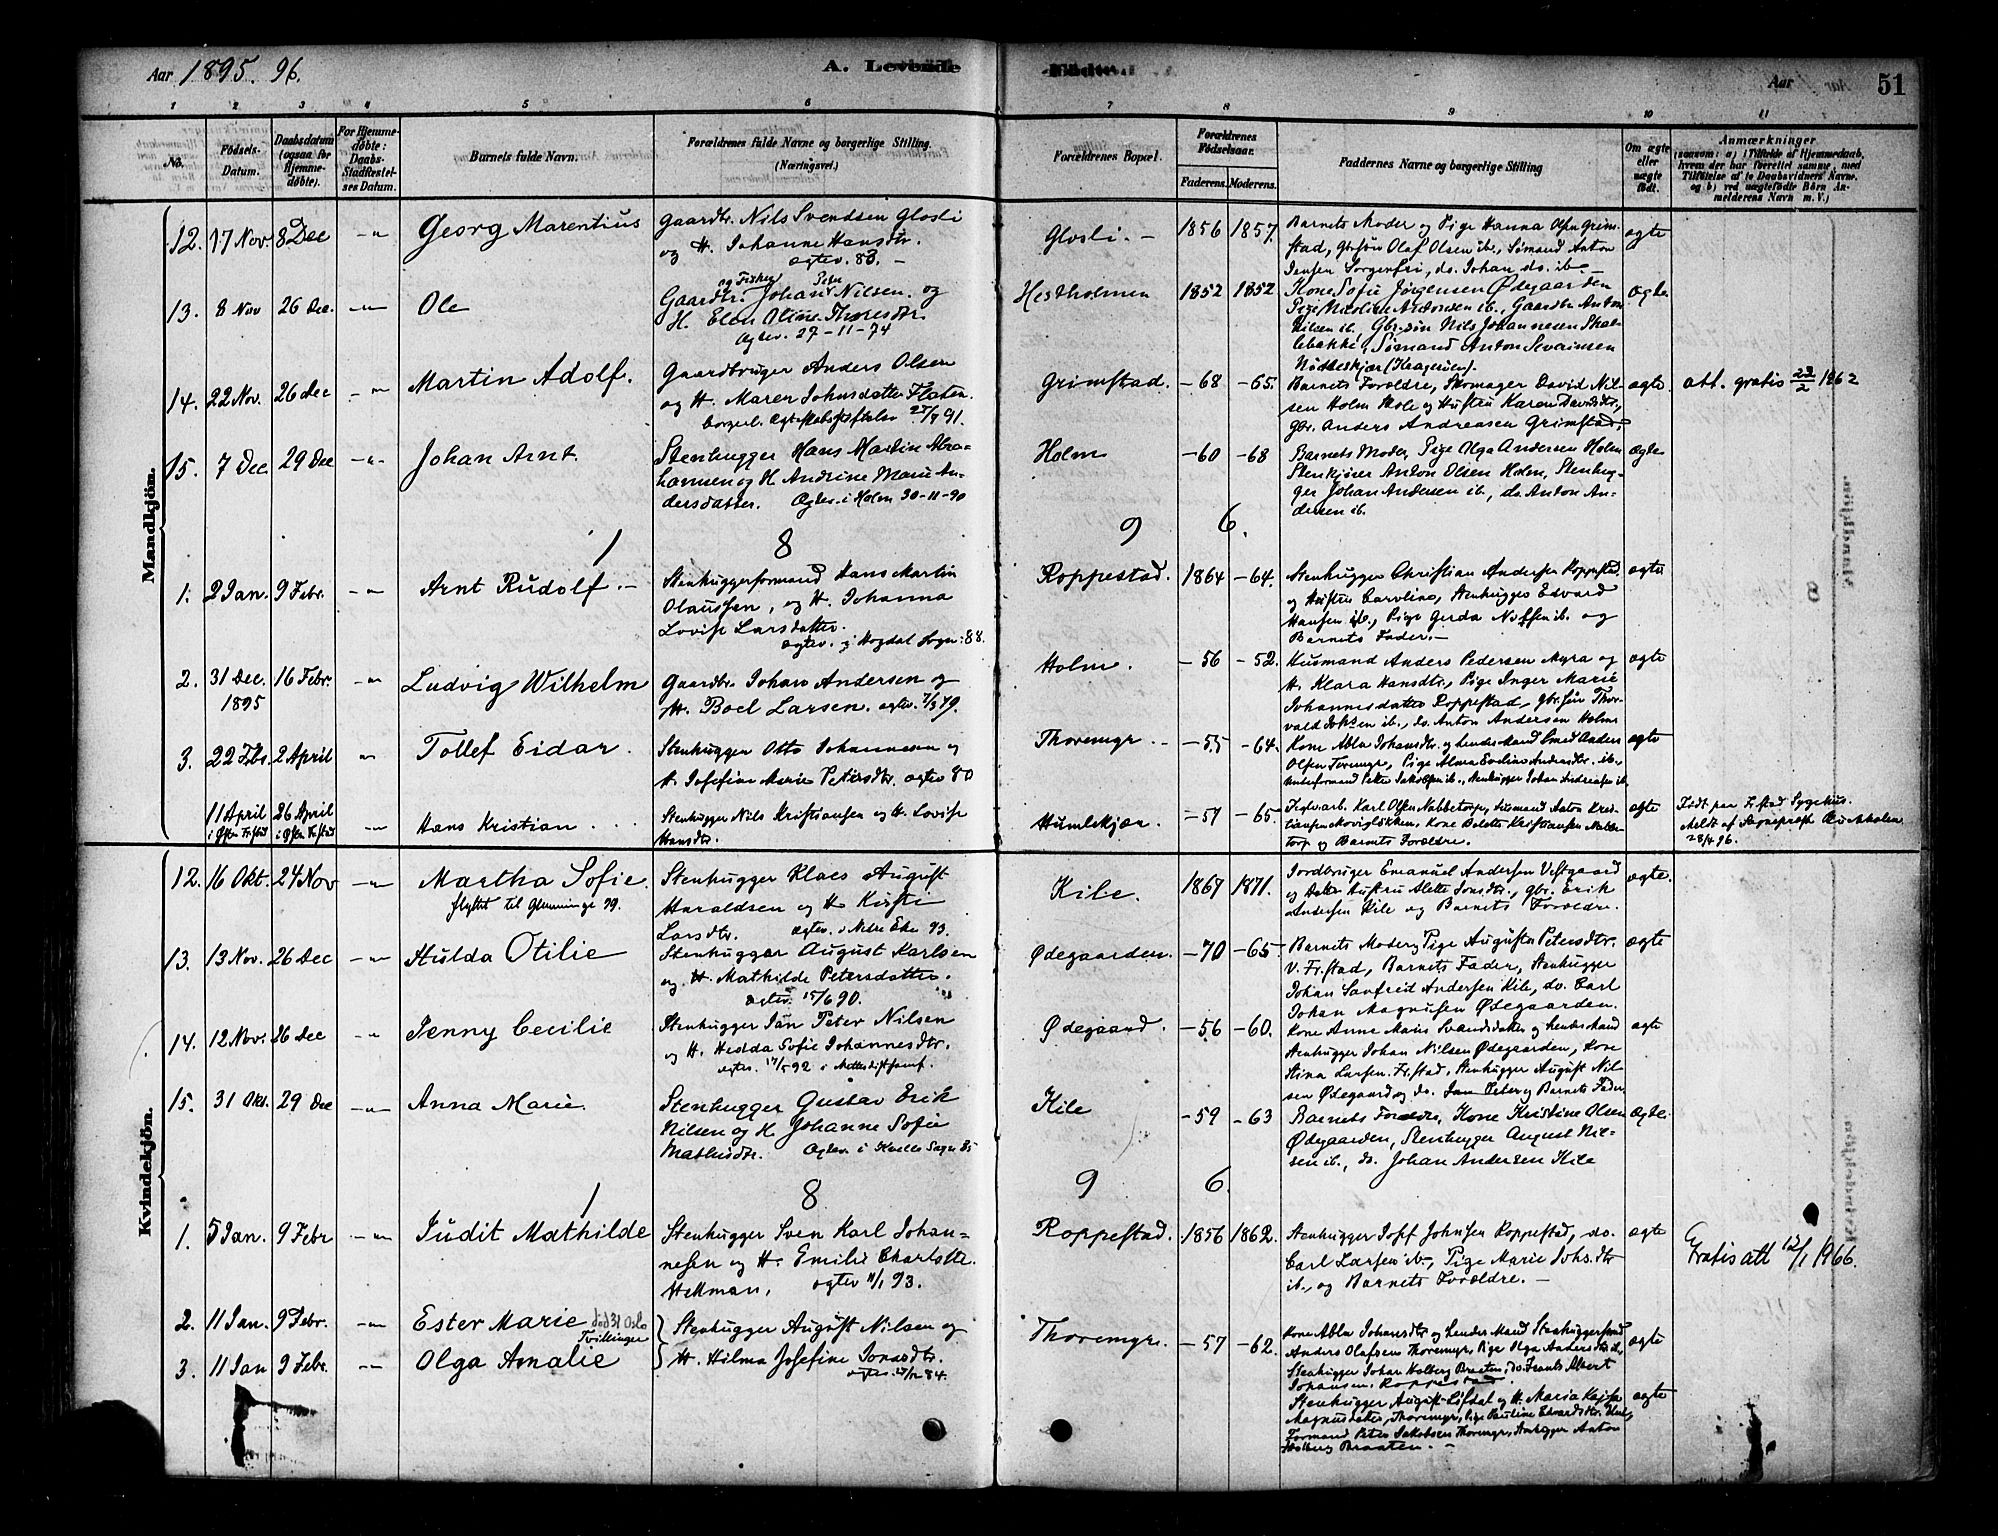 Aar 1895. 96.
A. Levende
Fødte.
Aar
51
1 2 3 4 5 6 7 8 9 10 11
No.
Fødsels-Datum.
Daabsdatum (ogsaa for Hjemmedøbte).
For Hjemmedøbte: Daabs-Stadfæstelses Datum.
Barnets fulde Navn.
Forældrenes fulde Navne og borgerlige Stilling. (Næringsvei.)
Forældrenes Bopæl.
Forældrenes Fødselsaar.
Faderens. Moderens.
Faddernes Navne og borgerlige Stilling
Om ægte eller uægte født.
Anmærkninger
(saasom: a) i Tilfælde af Hjemmedaab, hvem der har forrettet samme, med Tilføielse af to Daabsvidners Navne, og b) ved uægtefødte Børn Anmelderens Navn m. V.)
Mandkjön.
12. 17 Nov 8 Dec -"- Georg Marentius
Gaardbr. Nils Svendsen Glosli
og H. Johanne Hansdtr.
ægtev. 83. -
Glosli. - 1856 1857.
Barnets Moder og Pige Hanna Olsn Grim-
stad, Gbrsøn Olaf Olsen ib., Sømand Anton
Jensen Sorgenfri, do. Johan do. ib. -
ægte
13. 8 Nov 26 Dec. -"- Ole
og Fisker Peter
Gaardbr. Johan Nilsen og
H. Elen Oline Thoresdtr.
Ægtev. 27-11-74
Hestholmen 1852 1852
Kone Sofie Jørgensen Ødegaarden
Pige Nicoline ib., Gaardbr Anton
Nilsen ib., Gbr.søn Nils Johannesen Skal-
lebakke, Sømand Anton
ægte
14. 22 Nov. 26 Dec -"- Martin Adolf.
Gaardbruger Anders Olsen
og H. Maren Johnsdatter Floten.
Grimstad. -68 -65.
Barnets Forældre, Skomager David Nil-
sen Holm Skole og Hustru Karen Davidsdtr.,
Gbr. Anders Andreasen Grimstad.
ægte. att. gratis 23/2 1962
15. 7 Dec 29 Dec -"- Johan Arnt
Stenhugger Hans Martin Abra-
hamsen og H. Andrine Marie An-
dersdatter. Ægtev. i Holm 30-11-90
Holm -60 -68
Barnets Moder, Pige Olga Andersen Holm
Stenkjører Anton Olsen Holm, Stenhug-
ger Johan Andersen ib., do. Anton An-
dersen ib.
ægte
1 8 9 6.
1. 2 Jan. 9 Febr. -"- Arnt Rudolf. -
Stenhuggerformand Hans Martin
Olaussen, og H. Johanna
Lovise Larsdatter.
ægtev. i Hogdal Sogn. 88.
Roppestad. 1864 -64.
Stenhugger Christian Andersen Roppestad
og Hustru Caroline, Stenhugger Edvard
Hansen ib., Pige Gerda ib. og
Barnets Fader. -
ægte
2. 31 Dec. 1895 16 Febr. -"- Ludvig Wilhelm
Gaardbr. Johan Andersen og
H. Boel Larsen. ægtev. 7/3 79.
Holm. -56 -52.
Husmand Anders Pedersen Myra og
H. Klara Hansdtr., Pige Inger Marie
Johannesdatter Roppestad, Gbr.søn Thor-
vald ib., do. Anton Andersen Holm
ægte
3. 22 Feb. 2 April -"- Tollef Eidar.
Stenhugger Otto Johannesen og
H. Josefine Marie Petersdtr. ægtev 80
Thoremyr. -55 -64.
Kone Abla Johansdtr. og hendes Mand Smed Anders
Olsen Toremyr, Pige Alma Eveline Andersdtr. ib.,
ægte
11 April 26 April -"- Hans Kristian.
Stenhugger Nils Kristiansen og H. Lovise
Hansdtr.
Humlekjær. -57 -65.
Karl Olsen Nabbetorp, Sømand Anton Kris-
tiansen Kone Kristiansen Nabbe-
torp og Barnets Forældre.
ægte
Født paa Fr.stad Sygehus.
Meldt af Sognepræst
28/4 96.
Kvindekjön.
12. 16 Okt. 24 Nov -"- Martha Sofie.
flyttet til Glemminge 99.
Stenhugger Klaes August
Haraldsen og H. Kirsti
Larsdtr. ægtev. i Nedre Eker 93.
Kile. 1867 1871.
Jordbruger Emanuel Andersen Vestgaard
og Hustru Alette Jonsdtr., Gbr. Erik
Andersen Kile og Barnets Forældre.
ægte.
13. 13 Nov. 26 Dec -"- Hulda Otilie
Stenhugger August Karlsen
og H. Mathilde Petersdatter.
ægtev. 15/6 90.
Ødegaarden. -70 -65.
Barnets Moder, Pige Augusta Petersdtr.
v. Fr.stad, Barnets Fader, Stenhugger
Johan Sanfrid Andersen Kile, do. Carl
Johan Magnusen Ødegaarden.
ægte
14. 12 Nov. 26 Dec -"- Jenny Cecilie
Stenhugger Jan Peter Nilsen
og H. Hedda Sofie Johannesdtr.
Ødegaard. -56 -60.
Kone Anne Maria Svendsdatter og hendes Mand
Stenhugger Johan Nilsen Ødegaarden, Kone
Stina Larsen Fr.stad, Stenhugger August Nil-
sen Ødegaard og do. Jan Peter og Barnets Fader
ægte
15. 31 Okt. 29 Dec -"- Anna Marie.
Stenhugger Gustav Erik
Nilsen og H. Johanne Sofie
Mathisdtr. Ægtev. i Sogn 85
Kile -59 -63
Barnets Forældre, Kone Kristine Olsen
Ødegaarden, Stenhugger August Nil-
sen ib., do. Johan Andersen Kile
ægte.
1 8 9 6.
1. 5 Jan. 9 Febr -"- Judit Mathilde
Stenhugger Sven Karl Johan-
nesen og H. Emilie Charlotte
Hekman, ægtev 11/1 93.
Roppestad. 1856 1862.
Stenhugger Johnsen Roppestad, do.
Carl Larsen ib., Pige Marie Johsdtr
ib., og Barnets Forældre. -
ægte
Gratis att 12/1 1966.
2. 11 Jan. 9 Febr. -"- Ester Marie død 31 Oslo
Tvillinger
3. 11 Jan 9 Febr. -"- Olga Amalie
Stenhugger August Nilsen og
H. Hilma Josefine Jonasdtr.
Thoremyr. -57 -62.
Kone Abla Johansdtr og hendes Mand
Anders Olafsen Thoremyr, Pige Olga Andersdtr ib.,
Stenhugger Johan Holberg Braaten, do. Frants Albert
Johansen Roppestad.
ægte
Stenhugger August Löfdal og H. Maria Kajsa
Magnusdatter, Thoremyr, Pige Pauline Edvardsdtr.
Formand Peter Jakobsen Thoremyr, Stenhugger Anton
Holberg Braaten. -
ægte